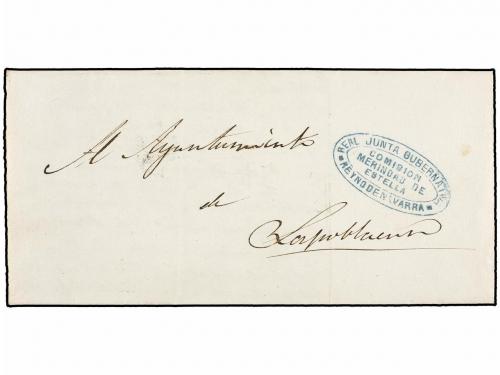 Al Ayuntamiento
de
REAL JUNTA GUBERNATIVA
COMISION
MERINDAD DE
ESTELLA
REYNO DE NAVARRA